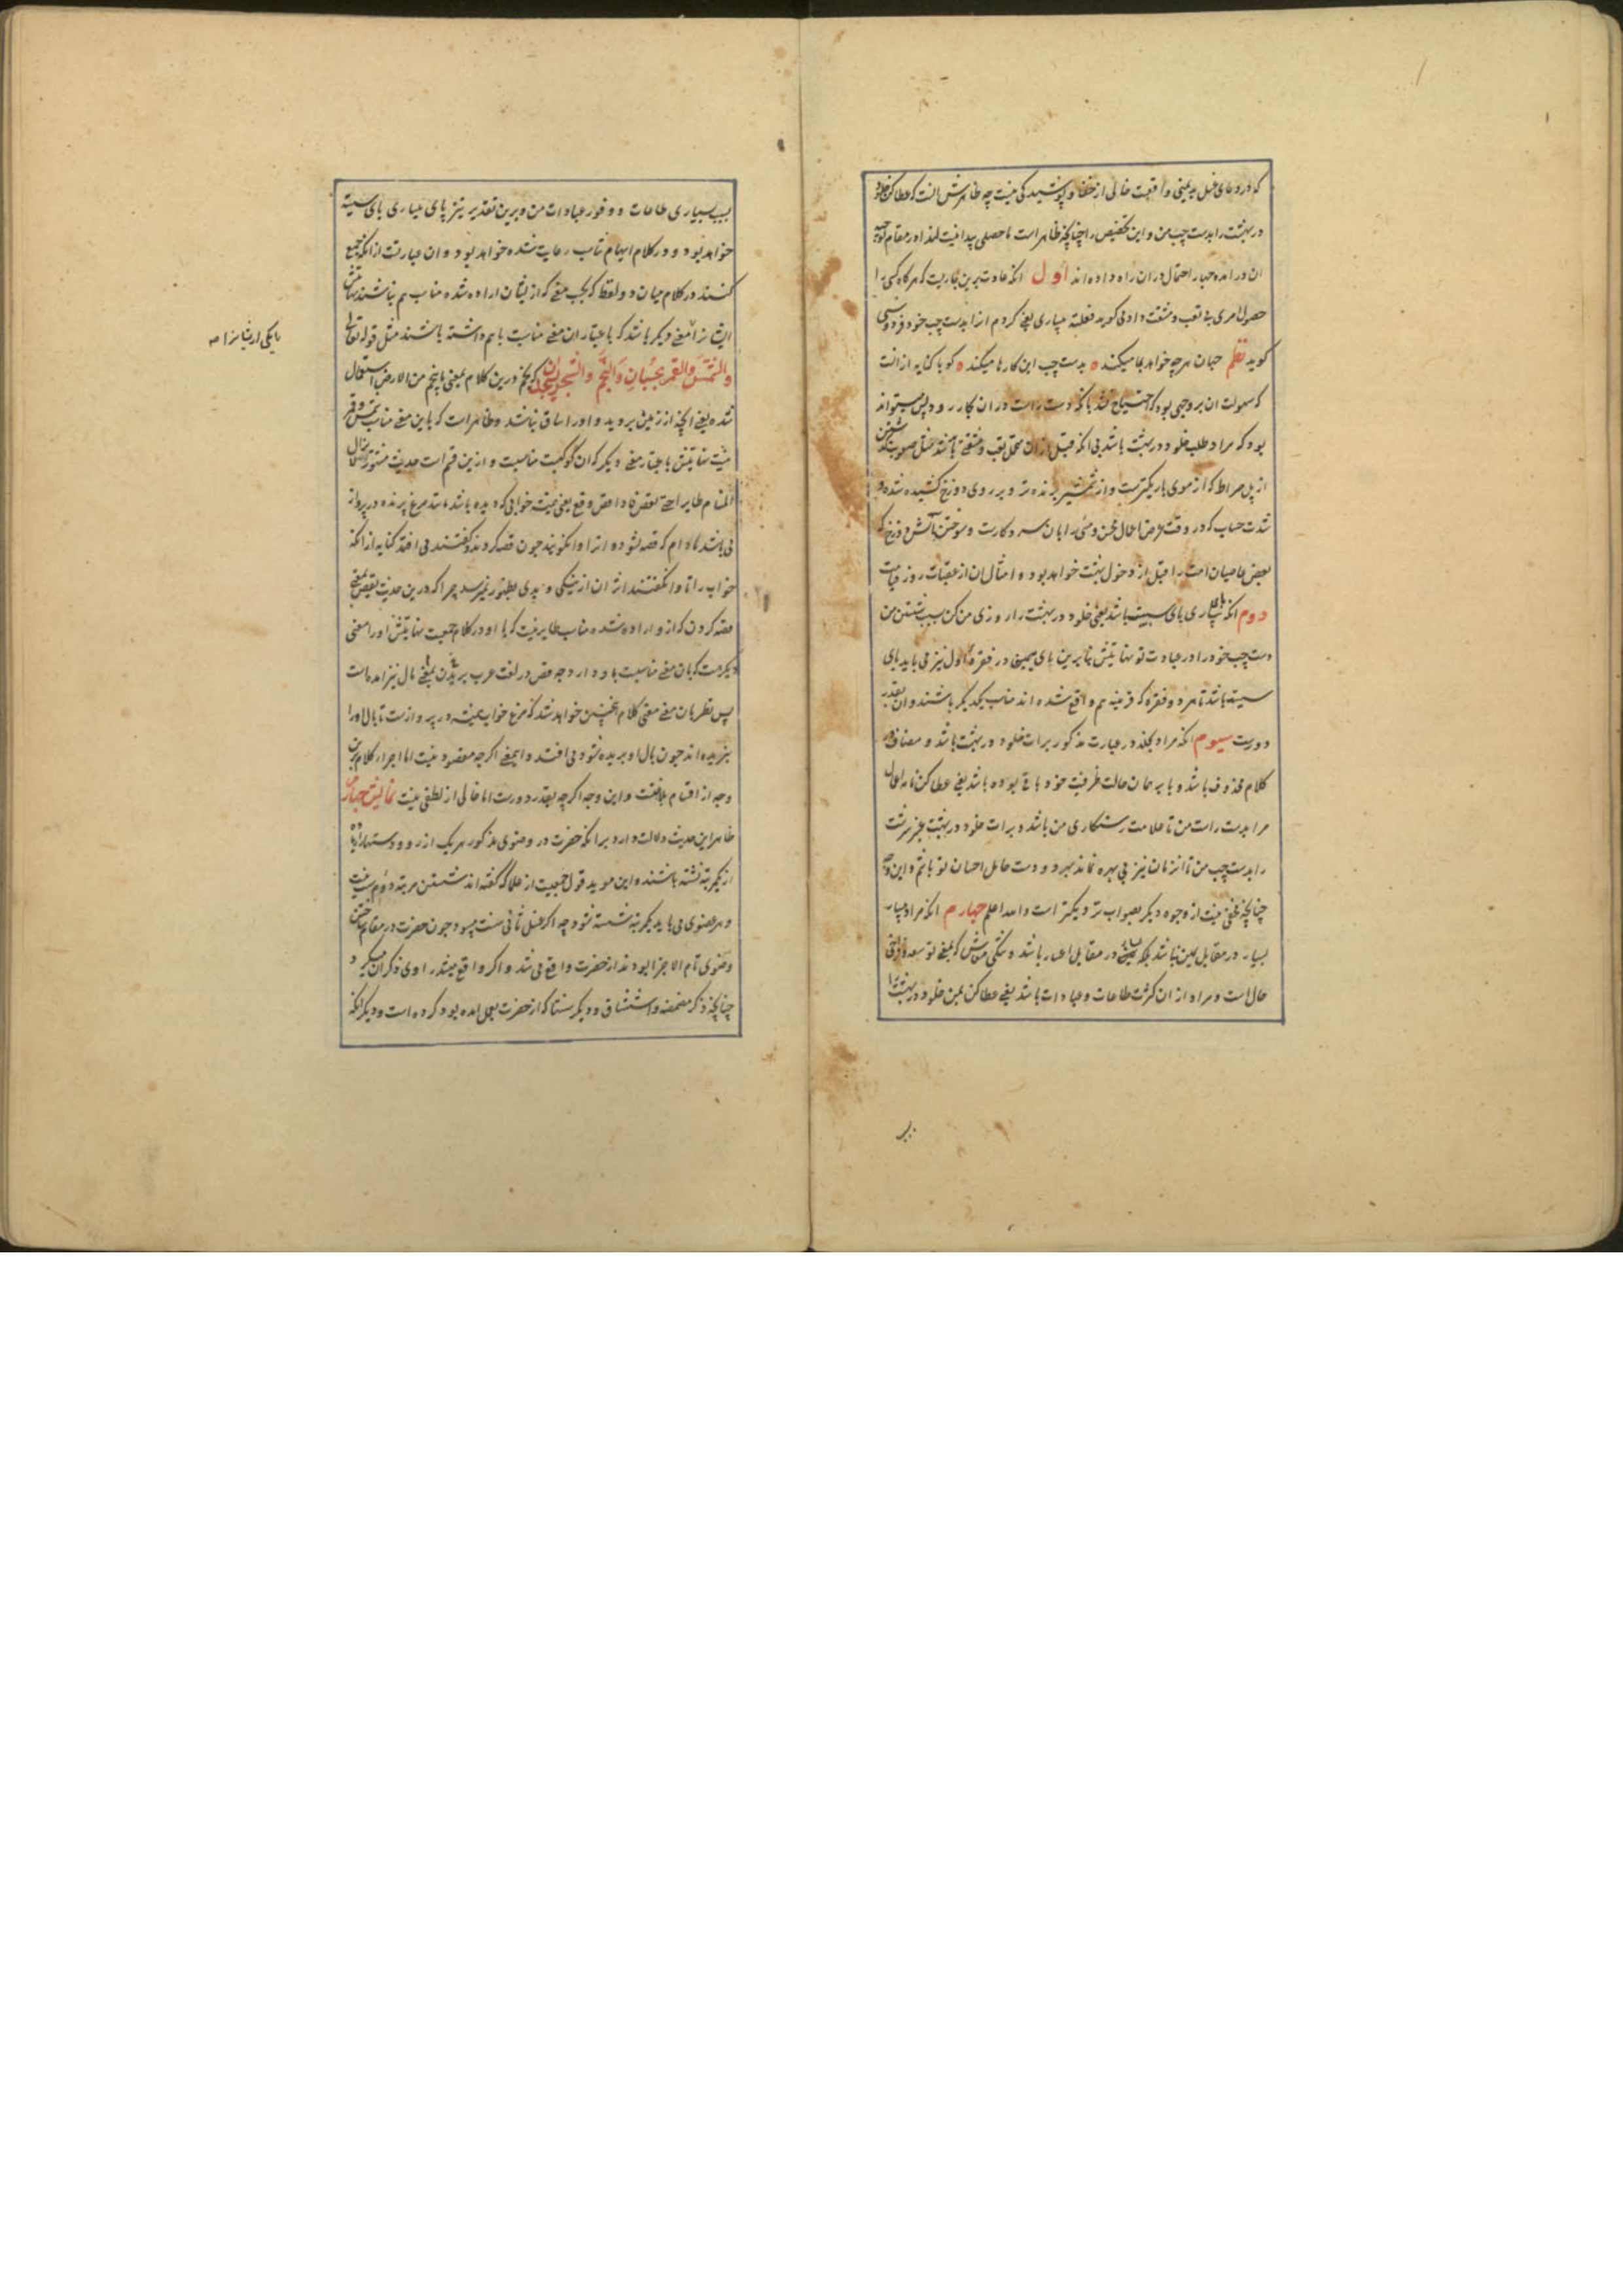 که در دعای غسل ید یمنی واقعست خالی از خفا و پوشیدگی نیست چه ظاهرش انست که عطا کن خلود
در بهشت را بدست چپ من و این تخصیص را چنانچه ظاهر است ما حصلی پیدا نیست لهذا در مقام توجیه
ان در امده چهار احتمال در ان راه داده اند اول انکه عادت برین جاریست که هرگاه کسی را
حصول امری بی تعب و مشقت دادنی گوید فعلته بیساری یعنی کردم انرا بدست چپ خود و فردوسی
گوید نظم جهان هر چه خواهد بما میکند ه بدست چپ این کارها میکند ه گویا کنایه از انست
که سهولت ان بر وجهی بود که احتیاج نشد بانکه دست راست در ان کار رود پس میتواند
بود که مراد طلب خلود در بهشت باشد بی انکه قبل از ان محل تعب و مشقتی باشد مثل صعوبت گذشتن
از پل صراط که از موی باریکترست و از شمشیر برنده تر و بر روی دوزخ کشیده شده و
شدت حساب که در وقت عرض اعمال محسن و مسئ را بان سر و کارست و سوختن باتش دوزخ که
بعض عاصیان امت را قبل از دخول بهشت خواهد بود و امثال ان از عقبات روز قیامت
دوم انکه بای بیساری بای سببیت باشد یعنی خلود در بهشت را روزی من کن بسبب شستن من
دست چپ خود را در عبادت تو نهایتش بنابرین بای بیمینی در فقره اول نیز می باید بای
سببیت باشد تا هر دو فقره که قرینه هم واقع شده اند مناسب یکدیگر باشند و ان بقدر
دورست سیوم انکه مراد بخلد در عبارت مذکور برات خلود در بهشت باشد و مضاف در
کلام محذوف باشد و با بر همان حالت ظرفیت خود باقی بوده باشد یعنی عطا کن نامه اعمال
مرا بدست راست من تا علامت رستکاری من باشد و برات خلود در بهشت عنبر سرشت
را بدست چپ من تا انهم از ان نیز بی بهره نماند و هر دو دست حامل احسان تو باشم و این وجه
چنانچه مخفی نیست از وجوه دیگر بصواب نزدیکتر است والله اعلم چهارم انکه مراد بیسار
یسار در مقابل یمین نباشد بلکه یساری در مقابل اعسار باشد و تنگی معاش که بمعنی توسعه و فراخی
حال است و مراد از ان کثرت طاعات و عبادات باشد یعنی عطا کن بمن خلود در بهشت را
بر
بسبب بسیاری طاعات و وفور عبادات من و برین تقدیر نیز بای بیساری بای سببیت
خواهد بود و در کلام ایهام تناسب رعایت شده خواهد بود و ان عبارتست از انکه جمع
کنند در کلام میان دو لفظ که بحسب معنی که از ایشان اراده شده مناسب هم نباشند نهایتش
ایشانرا معنی دیگر باشد که باعتبار ان معنی مناسبت باهم داشته باشند مثل قوله تعالی
والشَّمسُ والقمر بحُسْبانٍ وَالنَّجم وَالشَّجر یَسجُدان که نجم درین کلام بمعنی ما ینجم من الارض استعمال
شده یعنی انچه از زمین بروید و اورا ساق نباشد و ظاهر است که باین معنی مناسب شمس و قمر
نیست نهایتش باعتبار معنی دیگر که ان کوکبست مناسبست و ازین قسم است حدیث مشهور
المنام طایر اذا قص وقع یعنی همیشه خوابی که دیده باشد مانند مرغ پرنده در پرواز
می باشد مادام که قصه نشود و انرا وانگویند چون قصه کردند و گفتند می افتد کنایه از انکه
خواب را تا وانگفتند اثر ان از نیکی و بدی بظهور نمیرسد چرا که درین حدیث بقص معنی
قصه کردن که از و اراده شده مناسب طایر نیست که با او در کلام جمعست نهایتش اورا معنی
دیگر هست که بان معنی مناسبت با او دارد چه قص در لغت عرب بریدن بمعنی بال نیز امده است
پس نظر بان معنی معنی کلام چنین خواهد شد که مرغ خواب همیشه در پرواز است تا بال اورا
نبریده اند چون بال او بریده شود می افتد و این معنی اگرچه مقصود نیست اما اجراء کلام برین
وجه از اقسام بلاغتست و این وجه اگرچه بقدر دورست اما خالی از لطفی نیست
ظاهر این حدیث دلالت دارد برانکه حضرت در وضوی مذکور هر یک از رو و دستها را زیاده
از یکمرتبه نشسته باشند و این موید قول جمعیست از علما که گفته اند شستن مرتبه دوم سنت نیست
و هر عضوی می باید یکمرتبه شسته شود چه اگر غسل ثانی سنت میبود چون حضرت در مقام
وضوی تام الاجزا بودند از حضرت واقع می شد و اگر واقع میشد راوی ذکر ان میکرد
چنانچه ذکر مضمضه و استنشاق و دیگر سنتها که از حضرت بعمل امده بود کرده است و دیگر انکه